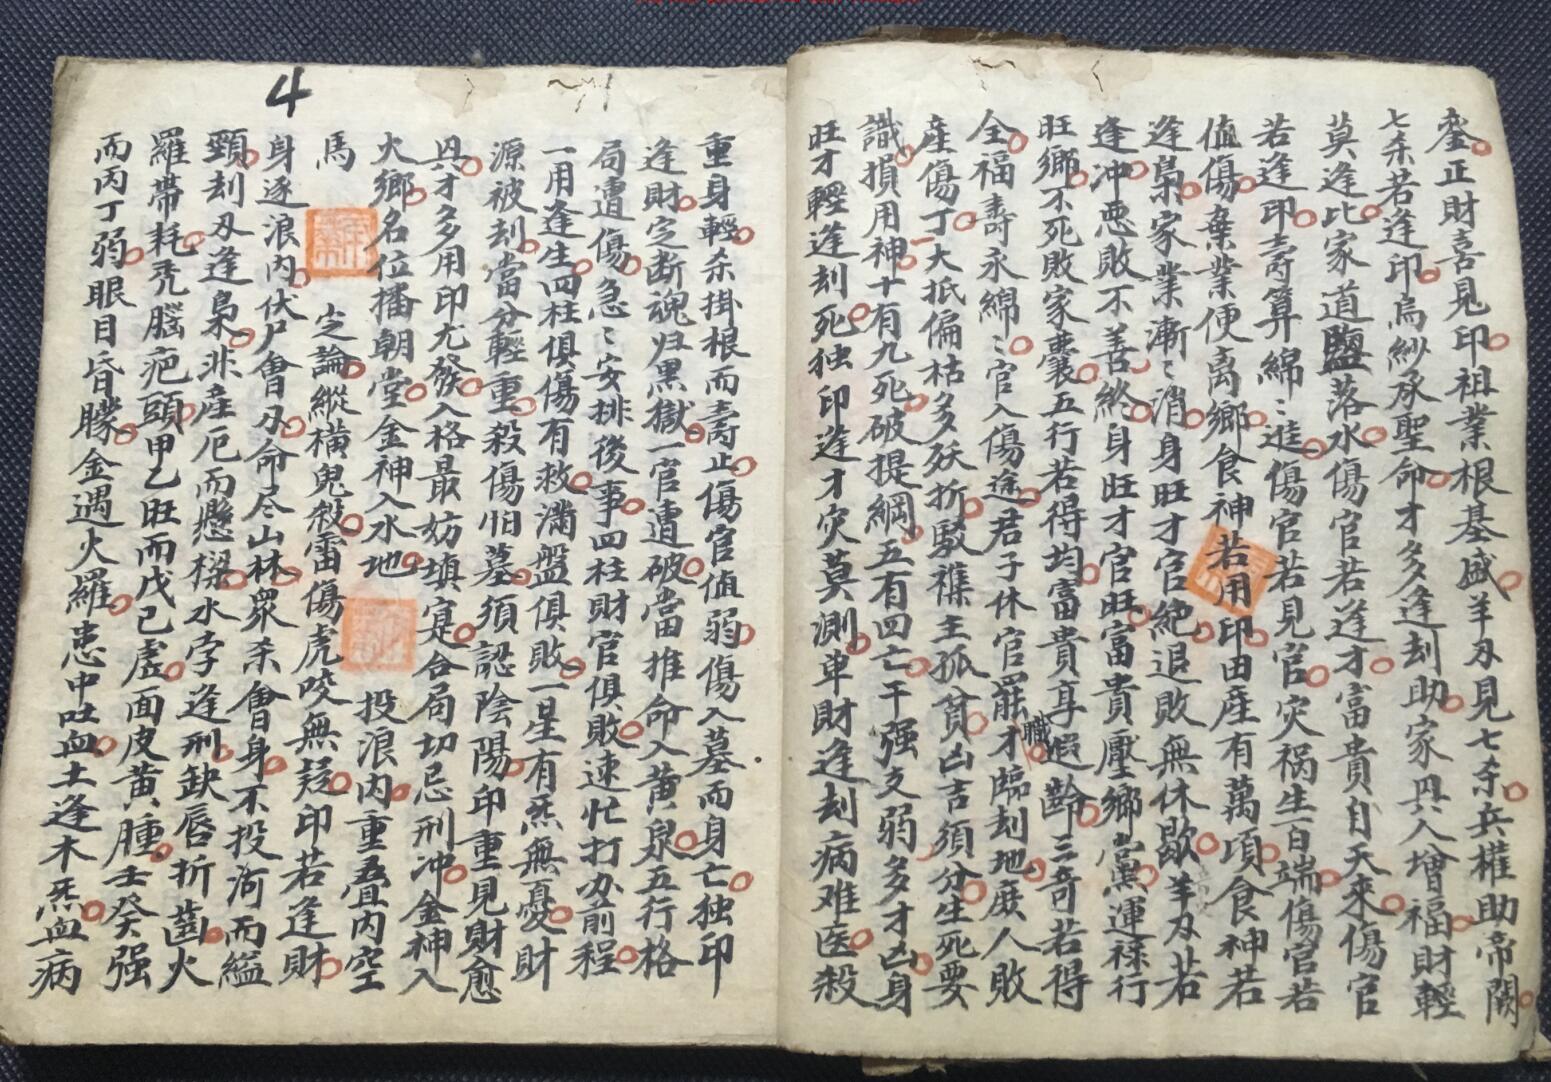 4
鑾正財喜見印祖業根基盛羊刃見七杀兵權助帝闕
七杀若逢印烏紗承聖命才多逢刦助家興人增福財輕
莫逢比家道盬落水傷官若逢才富貴自天來傷官
若逢印壽算綿〻逰傷官若見官灾禍生百端傷官若
值傷棄業便离鄉食神若用印田産有萬項食神若
逢梟家業漸〻消身旺才官絶退敗無休歇羊刃若
逢冲恶敗不善終身旺才官旺富貴壓鄉黨運祿行
旺鄉不死敗家囊五行若得均富貴享遐齡三奇若得
全福壽永綿〻官入傷途君子休官罷職才臨刦地庶人敗
産傷丁大抵偏枯多殀折駁襍主孤貧凶吉須分生死要
識損用神十有九死破提綱五有四亡干强支弱多才凶身
旺才輕逢刦死独印逢才灾莫測单財逢刦病难医殺
重身輕杀掛根而壽止傷官值弱傷入墓而身亡独印
逢財定断魂归黒獄一官遭破當推命入黄泉五行格
局遭傷急〻安排後事四柱財官俱敗速忙打办前程
一用逢生四柱俱傷有救滿盤俱敗一星有炁無憂財
源被刦當分輕重殺傷怕墓須認陰陽印重見財愈
興才多用印尤發入格最妨填寔合局切忌刑冲金神入
火鄉名位播朝堂金神入水地投浪内重叠内空
馬 㝎論縱横兒殺雷傷虎咬無疑印若逢財
身逐浪内伏尸會刃命尽山林眾杀會身不投河而縊
頸刦刃逢梟非産厄而懸樑水孛逢刑缺唇折齒火
羅帶耗秃腦疤頭甲乙旺而戊己虛面皮黄腫壬癸强
而丙丁弱眼目昏朦金遇火羅患中吐血土逢木炁血病